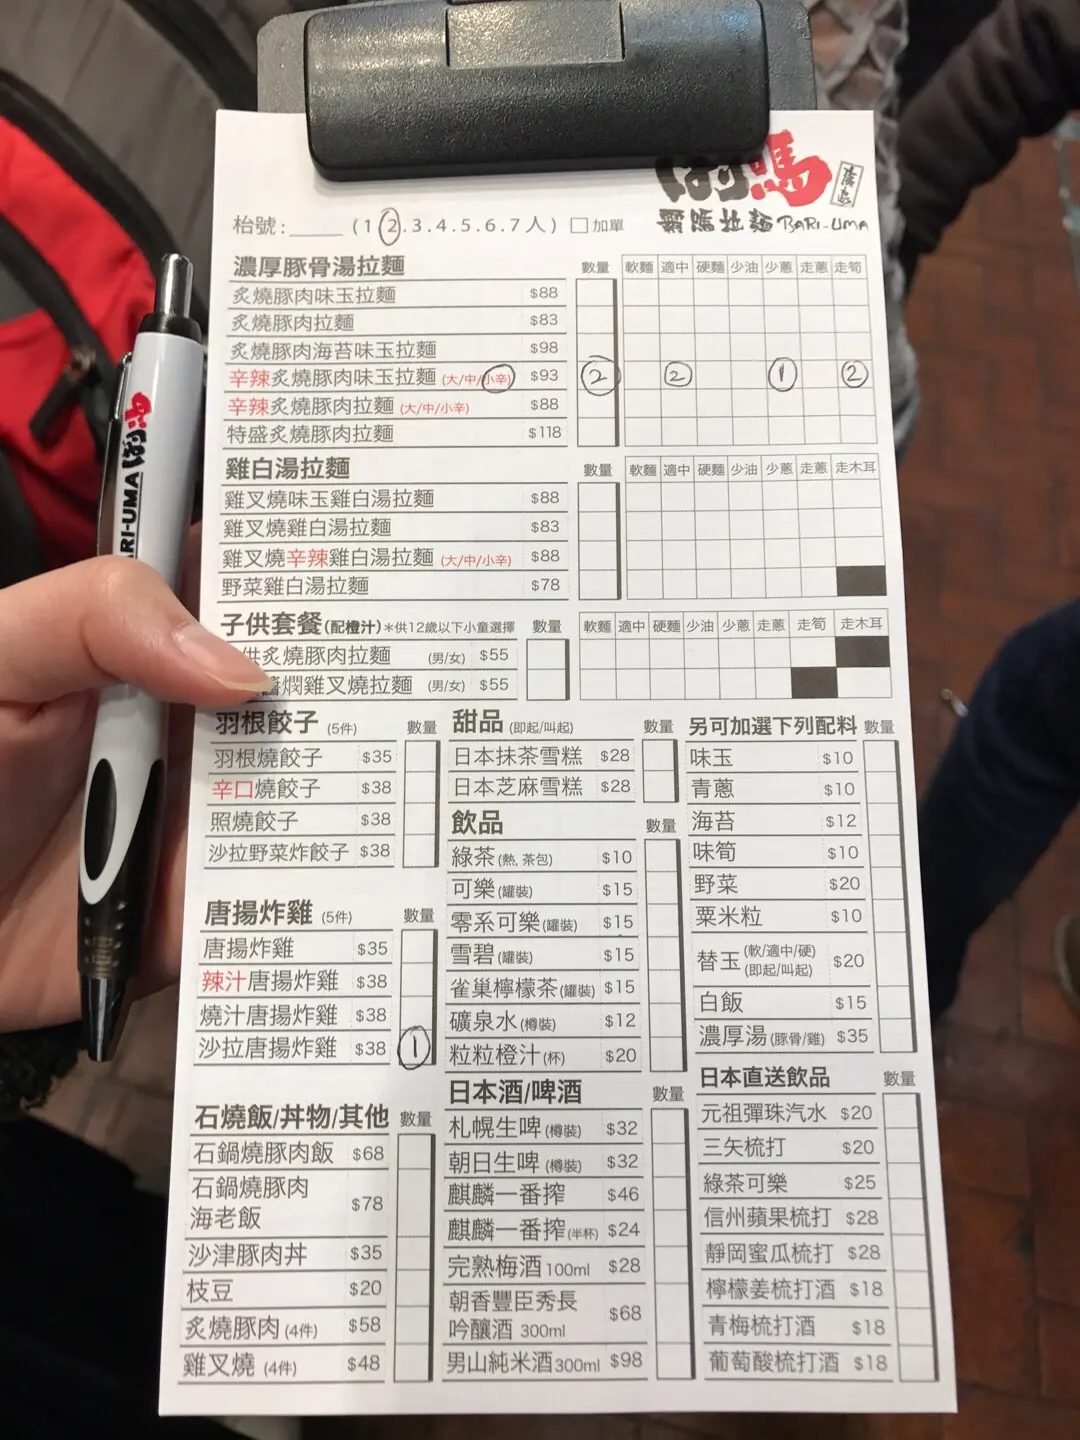 ばり馬
霸嗎拉麵 BARI-UMA
枱號: (1.2.3.4.5.6.7人) 加單
濃厚豚骨湯拉麵 數量 軟麵 適中 硬麵 少油 少蔥 走蔥 走筍
炙燒豚肉味玉拉麵 $88
炙燒豚肉拉麵 $83
炙燒豚肉海苔味玉拉麵 $98
辛辣炙燒豚肉味玉拉麵 (大/中/小辛) $93 2 2 1 2
辛辣炙燒豚肉拉麵 (大/中/小辛) $88
特盛炙燒豚肉拉麵 $118
雞白湯拉麵 數量 軟麵 適中 硬麵 少油 少蔥 走蔥 走木耳
雞叉燒味玉雞白湯拉麵 $88
雞叉燒雞白湯拉麵 $83
雞叉燒辛辣雞白湯拉麵 (大/中/小辛) $88
野菜雞白湯拉麵 $78
子供套餐(配橙汁)*供12歲以下小童選擇 數量 軟麵 適中 硬麵 少油 少蔥 走蔥 走筍 走木耳
供炙燒豚肉拉麵 (男/女) $55
醬燜雞叉燒拉麵 (男/女) $55
羽根餃子 (5件) 數量
羽根燒餃子 $35
辛口燒餃子 $38
照燒餃子 $38
沙拉野菜炸餃子 $38
唐揚炸雞 (5件) 數量
唐揚炸雞 $35
辣汁唐揚炸雞 $38
燒汁唐揚炸雞 $38
沙拉唐揚炸雞 $38 1
石燒飯/丼物/其他 數量
石鍋燒豚肉飯 $68
石鍋燒豚肉
海老飯 $78
沙津豚肉丼 $35
枝豆 $20
炙燒豚肉 (4件) $58
雞叉燒 (4件) $48
甜品 (即起/叫起) 數量
日本抹茶雪糕 $28
日本芝麻雪糕 $28
飲品 數量
綠茶 (熱, 茶包) $10
可樂 (罐裝) $15
零系可樂 (罐裝) $15
雪碧 (罐裝) $15
雀巢檸檬茶 (罐裝) $15
礦泉水 (樽裝) $12
粒粒橙汁 (杯) $20
日本酒/啤酒 數量
札幌生啤 (樽裝) $32
朝日生啤 (樽裝) $32
麒麟一番搾 $46
麒麟一番搾 (半杯) $24
完熟梅酒 100ml $28
朝香豐臣秀長
吟釀酒 300ml $68
男山純米酒 300ml $98
另可加選下列配料 數量
味玉 $10
青蔥 $10
海苔 $12
味筍 $10
野菜 $20
粟米粒 $10
替玉 (軟/適中/硬) (即起/叫起) $20
白飯 $15
濃厚湯 (豚骨/雞) $35
日本直送飲品 數量
元祖彈珠汽水 $20
三矢梳打 $20
綠茶可樂 $25
信州蘋果梳打 $28
靜岡蜜瓜梳打 $28
檸檬姜梳打酒 $18
青梅梳打酒 $18
葡萄酸梳打酒 $18
BARI-UMA ばり馬